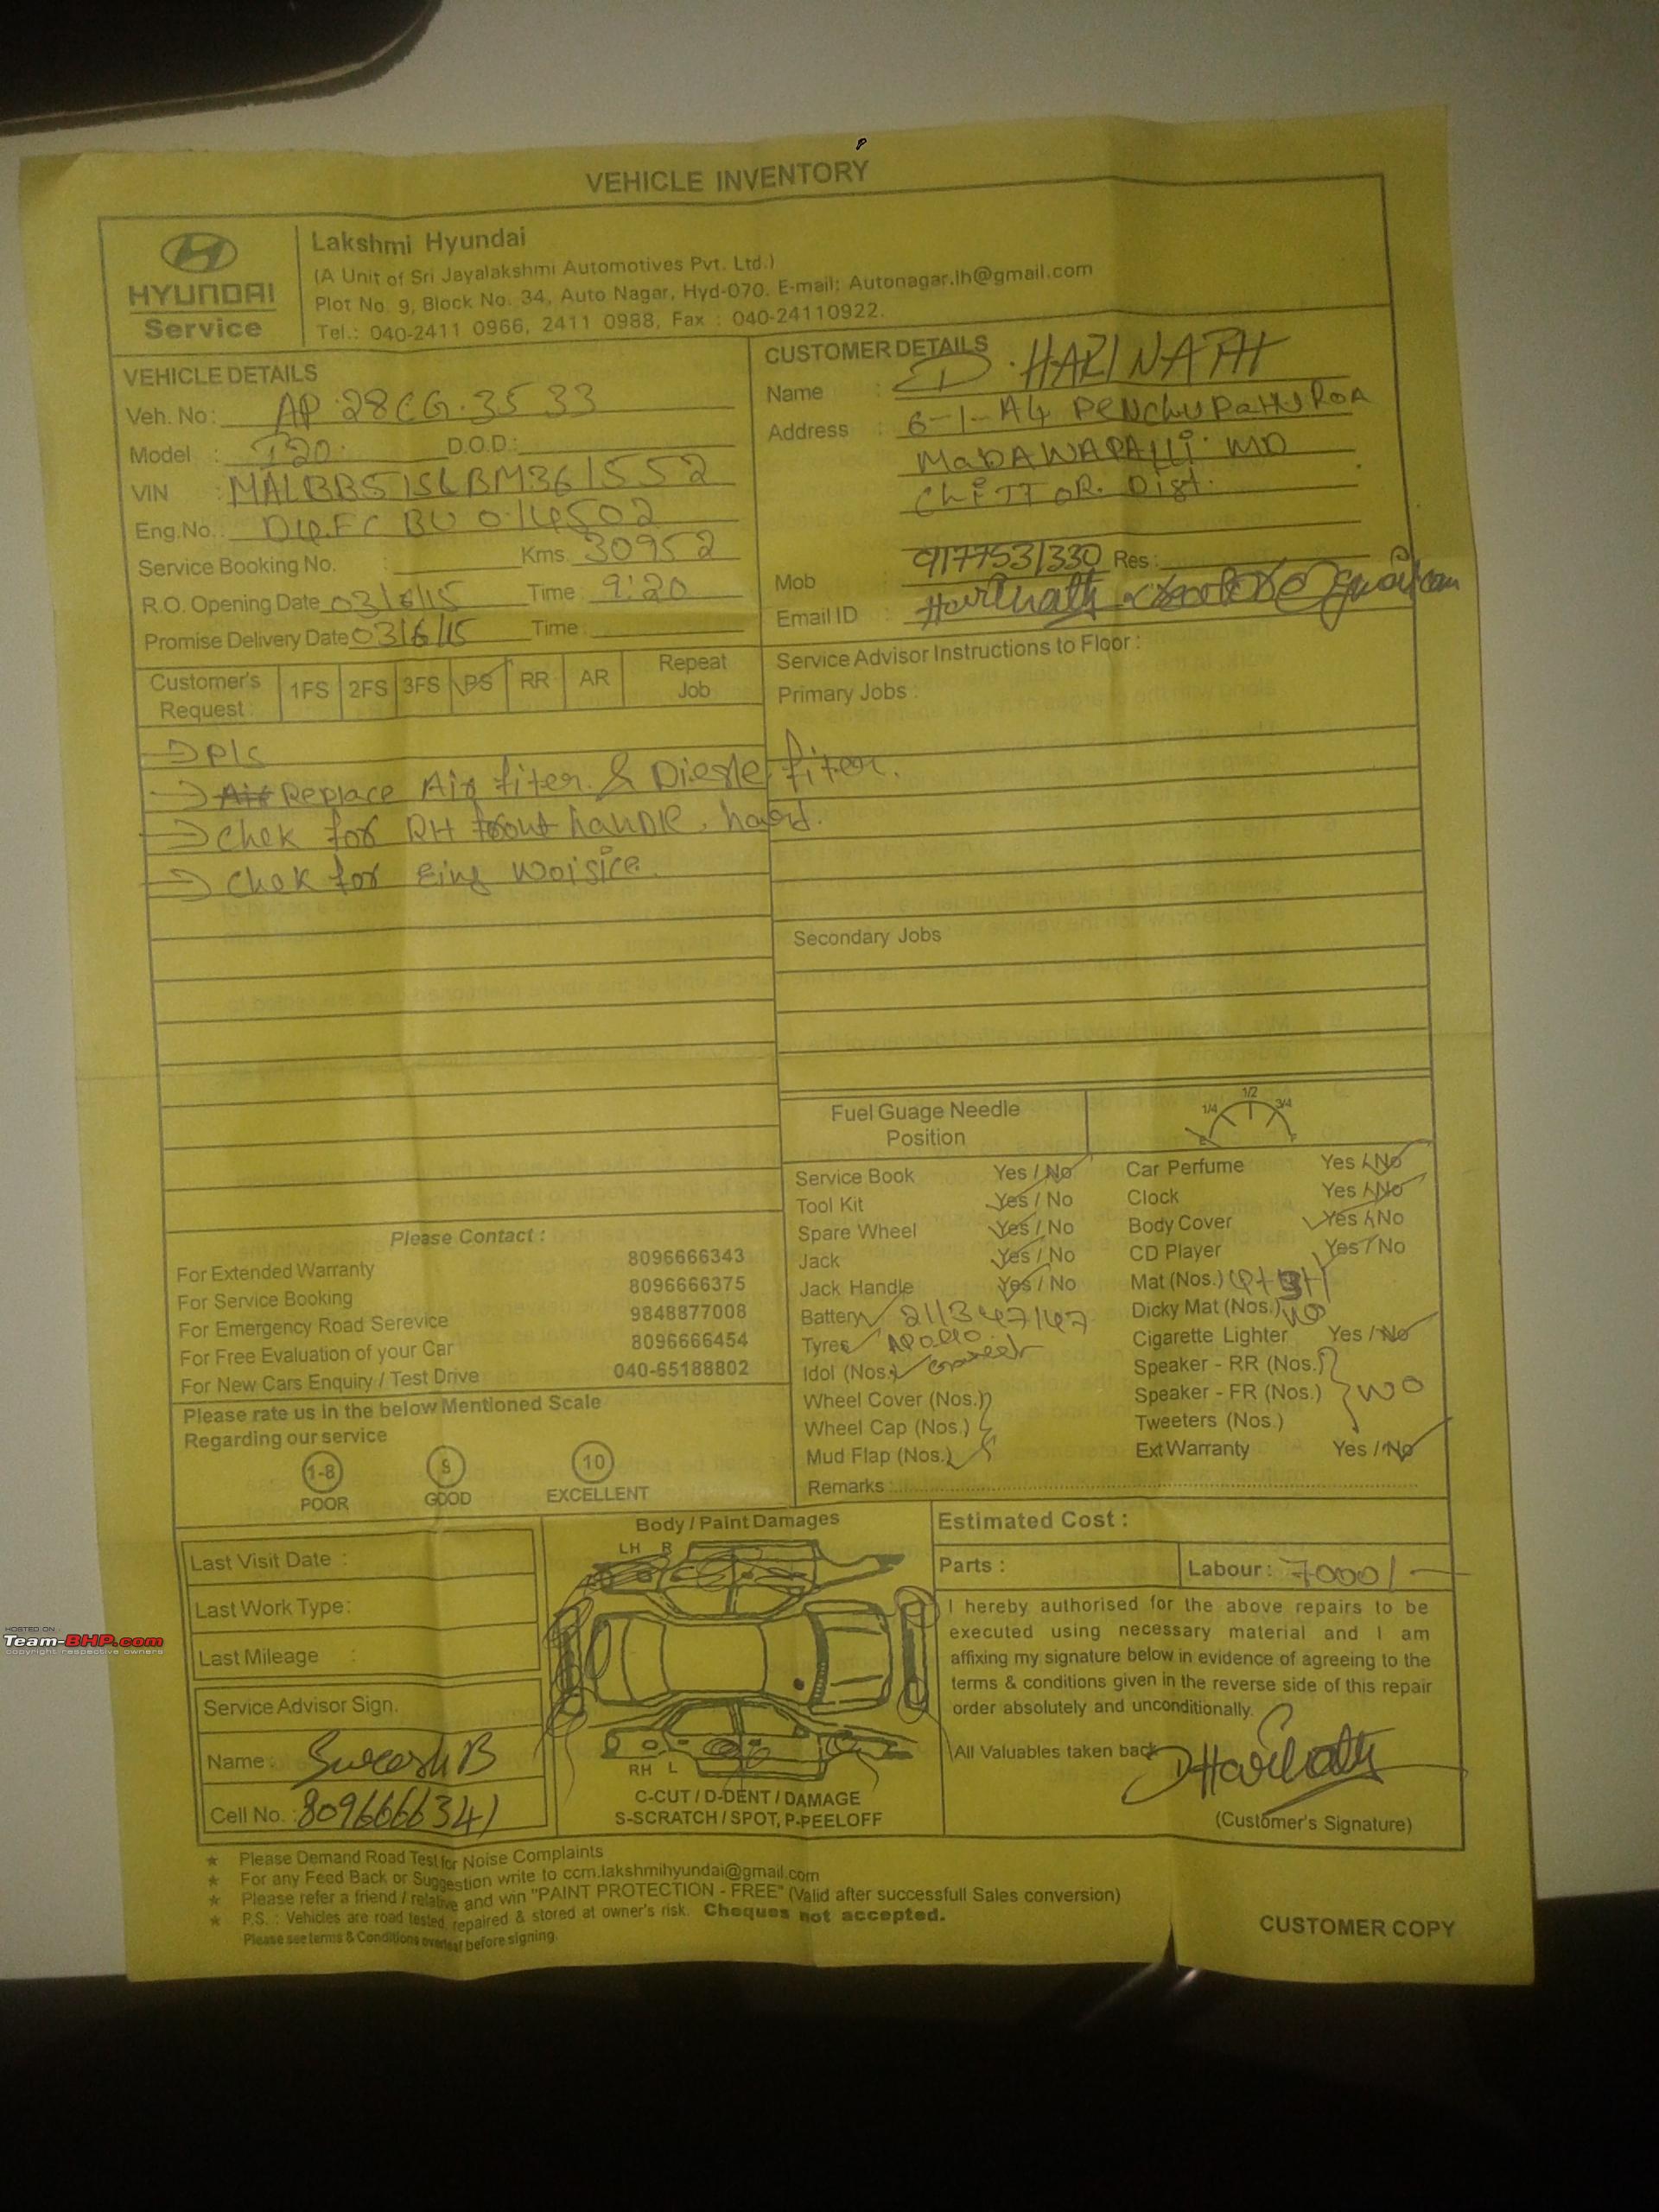 VEHICLE INVENTORY
HYUNDAI
Service
Lakshmi Hyundai
(A Unit of Sri Jayalakshmi Automotives Pvt. Ltd.)
Plot No. 9, Block No. 34, Auto Nagar, Hyd-070. E-mail: Autonagar.lh@gmail.com
Tel.: 040-2411 0966, 2411 0988, Fax : 040-24110922.
VEHICLE DETAILS
Veh. No: AP 28CG 3533
Model : I20 D.O.D.:
VIN :
Eng.No.:
Service Booking No. : Kms. 30952
R.O. Opening Date 03/6/15 Time : 9:20
Promise Delivery Date 03/6/15 Time :
CUSTOMER DETAILS
Name : D. HARINATH
Address : 6-1-A4
MADANAPALLI MD
CHITTOR. Dist.
Mob 9177531330 Res :
Email ID : Harinath
Customer's Request : 1FS 2FS 3FS PS RR AR Repeat Job
→ PlS
→ Replace Air fiter & Diesle fiter.
→ Chek for RH front handle hard.
→ Chek for Eing Noisice.
Service Advisor Instructions to Floor :
Primary Jobs :
Secondary Jobs
Fuel Guage Needle Position
E 1/4 1/2 3/4 F
Service Book Yes / No Car Perfume Yes / No
Tool Kit Yes / No Clock Yes / No
Spare Wheel Yes / No Body Cover Yes / No
Jack Yes / No CD Player Yes / No
Jack Handle Yes / No Mat (Nos.)
Battery 211347147 Dicky Mat (Nos.) NO
Tyres Apollo Cigarette Lighter Yes / No
Idol (Nos.) Speaker - RR (Nos.)
Wheel Cover (Nos.) Speaker - FR (Nos.) NO
Wheel Cap (Nos.) Tweeters (Nos.)
Mud Flap (Nos.) Ext Warranty Yes / No
Remarks :
Please Contact :
For Extended Warranty 8096666343
For Service Booking 8096666375
For Emergency Road Serevice 9848877008
For Free Evaluation of your Car 8096666454
For New Cars Enquiry / Test Drive 040-65188802
Please rate us in the below Mentioned Scale
Regarding our service
1-8 9 10
POOR GOOD EXCELLENT
Last Visit Date :
Last Work Type:
Last Mileage :
Service Advisor Sign.
Name : Suresh B
Cell No. : 8096666341
Body / Paint Damages
LH R
RH L
C-CUT / D-DENT / DAMAGE
S-SCRATCH / SPOT, P-PEELOFF
Estimated Cost :
Parts : Labour : 7000/-
I hereby authorised for the above repairs to be
executed using necessary material and I am
affixing my signature below in evidence of agreeing to the
terms & conditions given in the reverse side of this repair
order absolutely and unconditionally.
All Valuables taken back
D Harinath
(Customer's Signature)
★ Please Demand Road Test for Noise Complaints
★ For any Feed Back or Suggestion write to ccm.lakshmihyundai@gmail.com
★ Please refer a friend / relative and win "PAINT PROTECTION - FREE" (Valid after successfull Sales conversion)
★ P.S. : Vehicles are road tested, repaired & stored at owner's risk. Cheques not accepted.
Please see terms & Conditions overleaf before signing.
CUSTOMER COPY
HOSTED ON :
Team-BHP.com
copyright respective owners